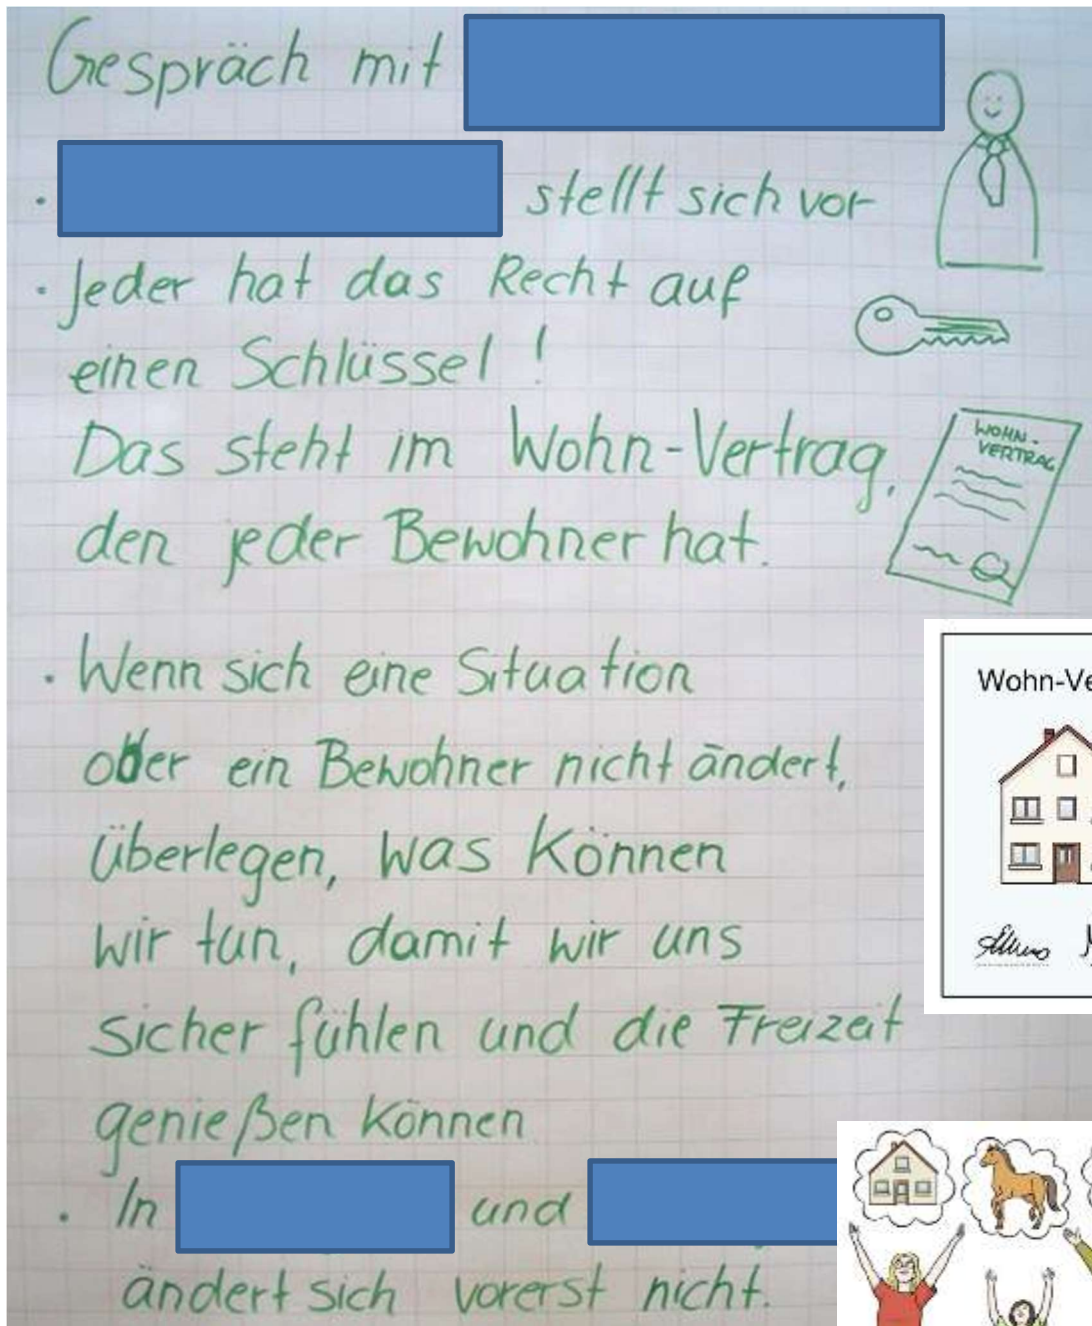 Gespräch mit
· stellt sich vor
· Jeder hat das Recht auf
einen Schlüssel!
Das steht im Wohn-Vertrag,
den jeder Bewohner hat.
WOHN-
VERTRAG
· Wenn sich eine Situation
oder ein Bewohner nicht ändert,
überlegen, was können
wir tun, damit wir uns
sicher fühlen und die Freizeit
genießen können
· In und
ändert sich vorerst nicht.
Wohn-Ve